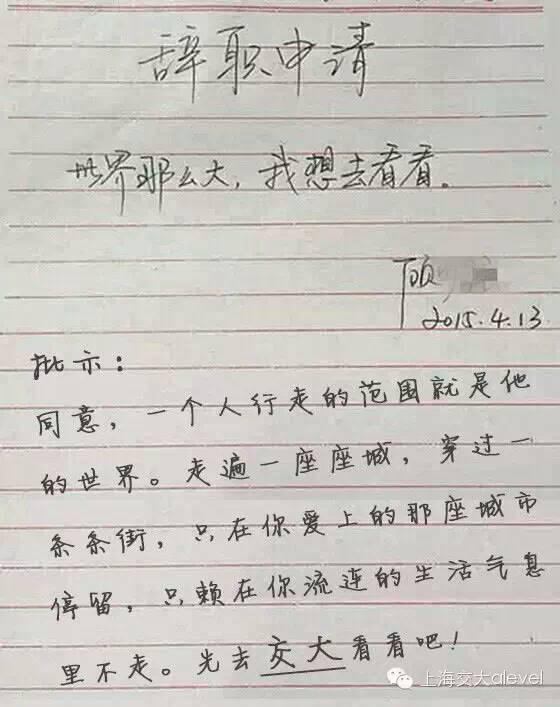 辞职申请
世界那么大，我想去看看。
顾
2015.4.13
批示：
同意，一个人行走的范围就是他
的世界。走遍一座座城，穿过一
条条街，只在你爱上的那座城市
停留，只赖在你流连的生活气息
里不走。先去交大看看吧！
上海交大alevel